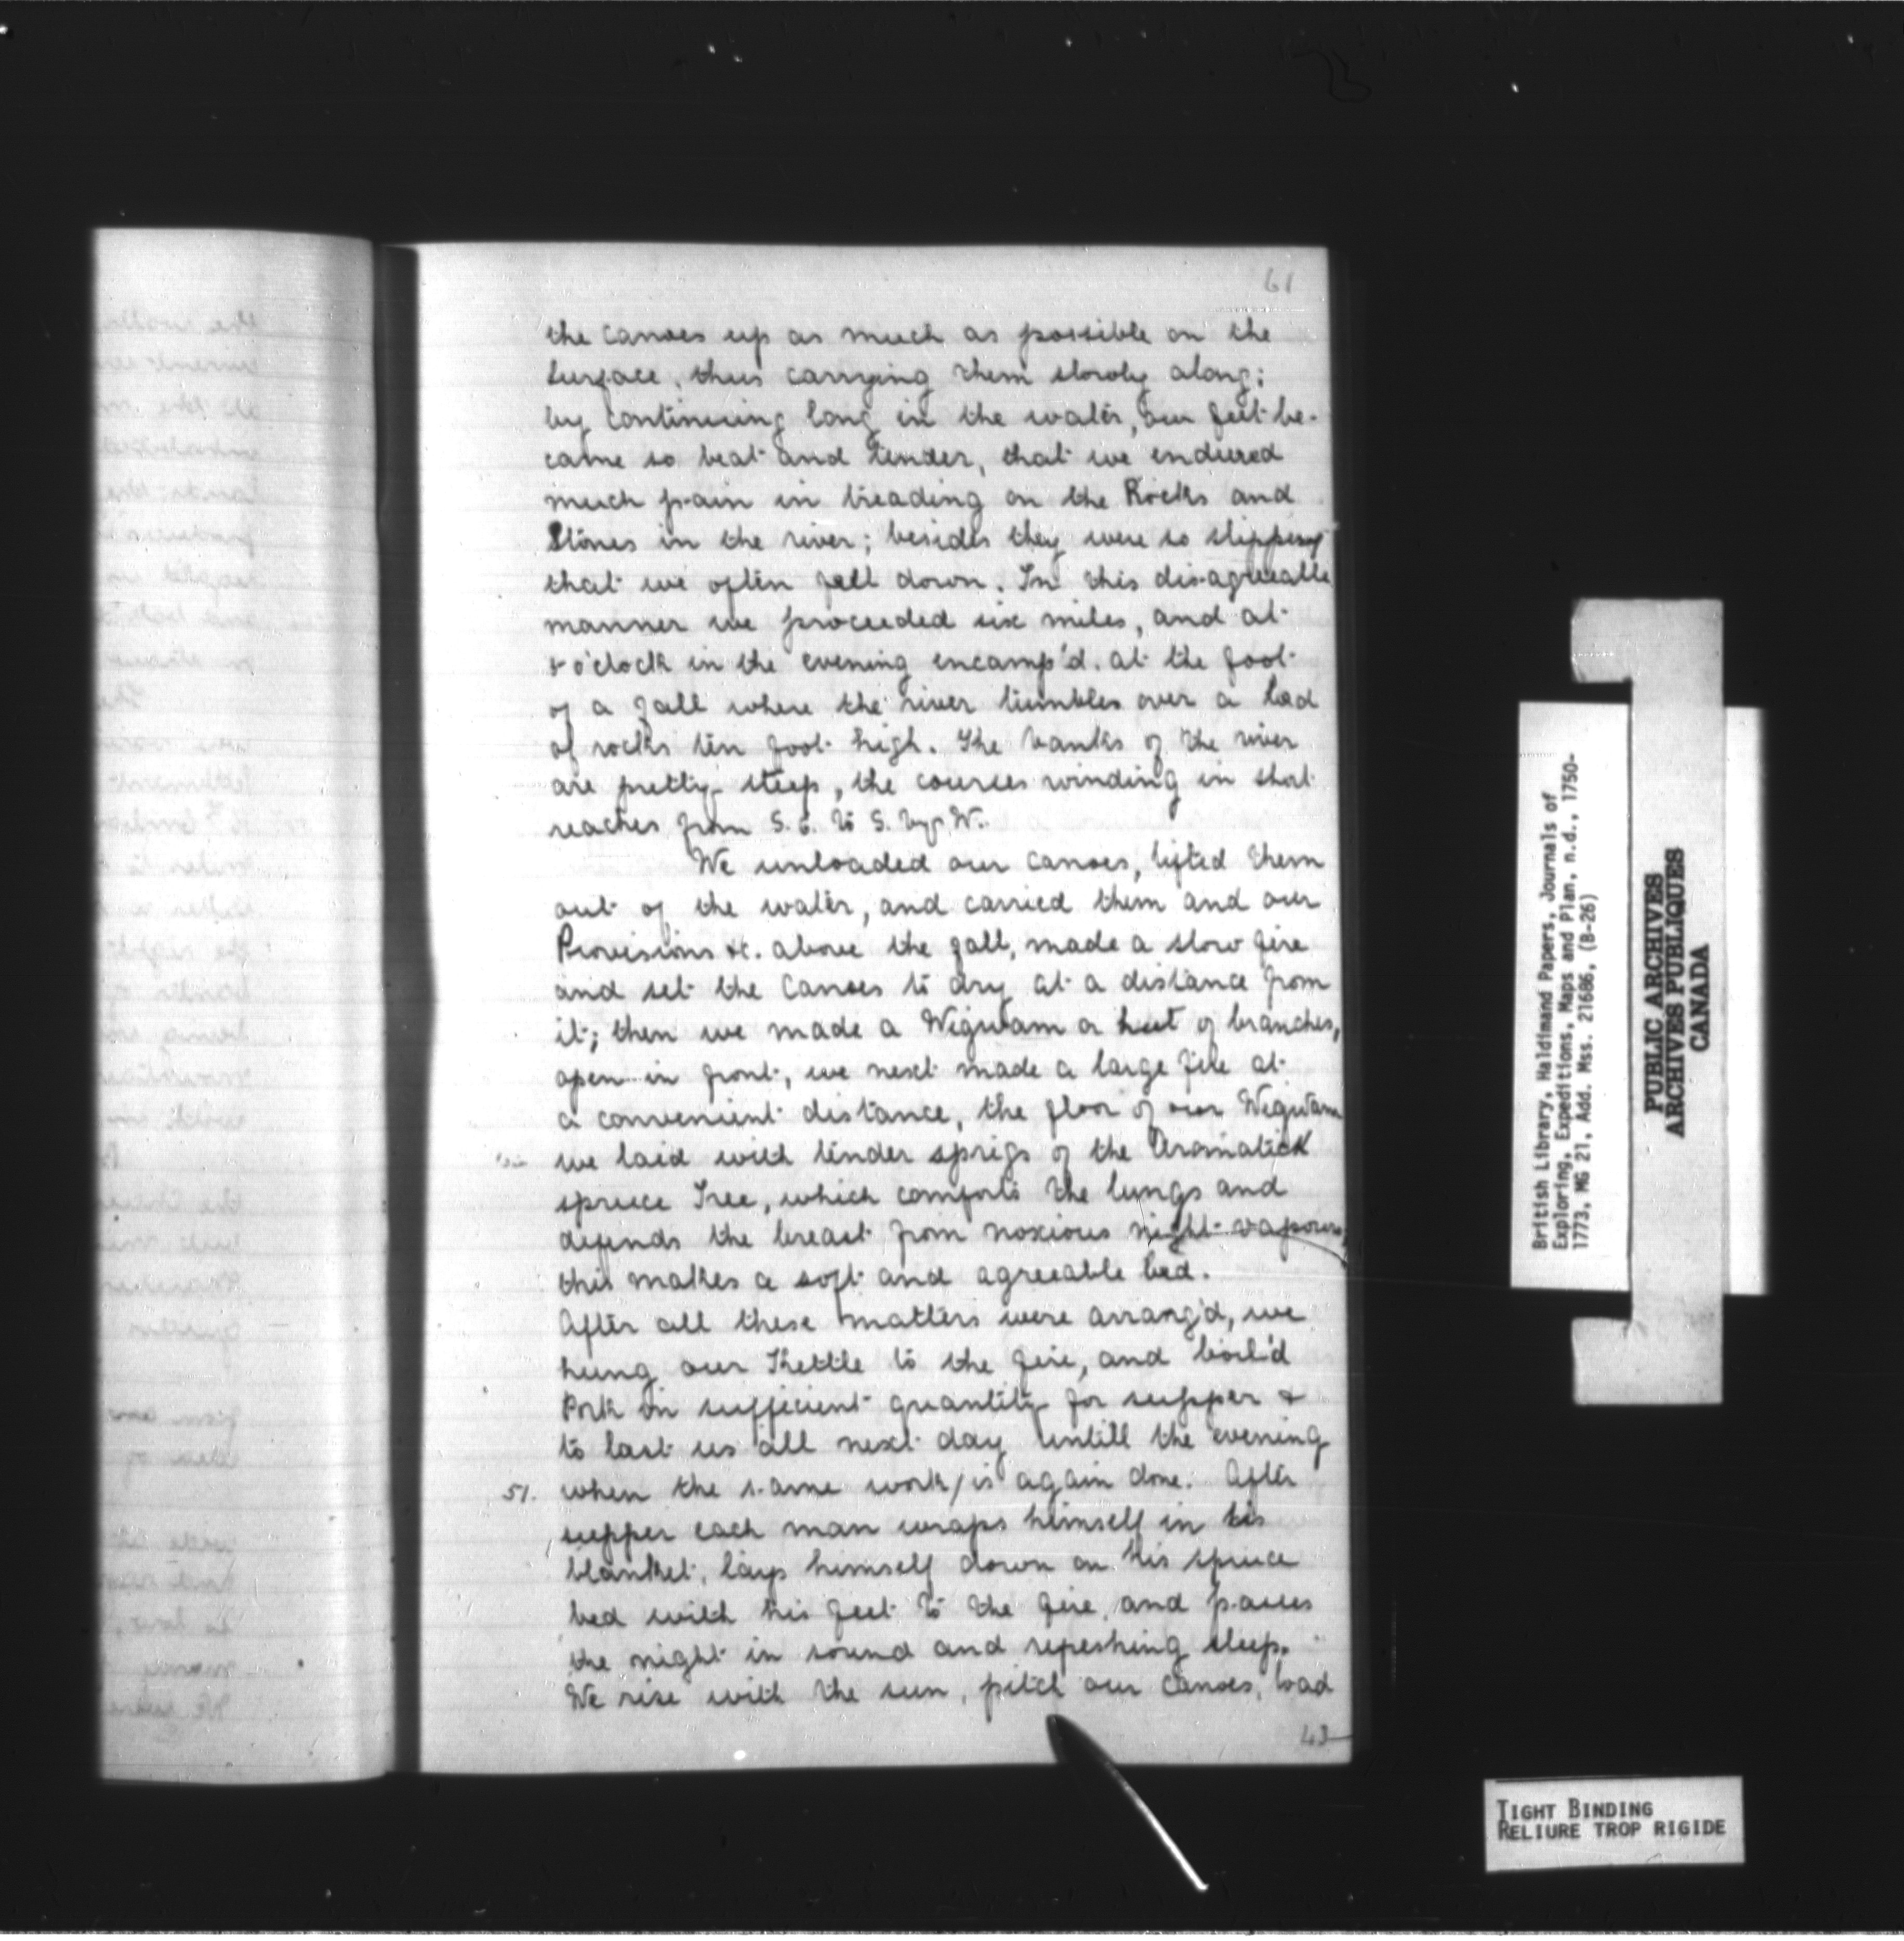 61
the canoes up as much as possible on the
surface, thus carrying them slowly along;
by continuing long in the water, our feet be-
came so beat and tender, that we endured
much pain in treading on the Rocks and
Stones in the river; besides they were so slippery
that we often fell down. In this disagreeable
manner we proceeded six miles, and at
o'clock in the evening encamp'd. at the foot
of a fall where the river tumbles over a bed
of rocks ten foot high. The banks of the river
are pretty steep, the courses winding in shot
reaches from S. E. to S. by W.
We unloaded our canoes, lifted them
out of the water, and carried them and our
Provisions &c. above the fall, made a slow fire
and set the Canoes to dry at a distance from
it; then we made a Wigwam or hut of branches,
open in front, we next made a large fire at
a convenient distance, the floor of our Wigwam
we laid with tinder sprigs of the Aromatick
spruce Tree, which comforts the lungs and
defends the breast from noxious night vapours,
this makes a soft and agreeable bed.
After all these matters were arrang'd, we
hung our Kettle to the fire, and boil'd
Pork in sufficient quantity for supper &
to last us all next day untill the evening
51. when the same work is again done. After
supper each man wraps himself in his
blanket, lays himself down on his spruce
bed with his feet to the fire, and passes
the night in sound and refreshing sleep.
We rise with the sun, pitch our Canoes, load
43
British Library, Haldimand Papers, Journals of
Exploring, Expeditions, Maps and Plan, n.d., 1750-
1773, MG 21, Add. Mss. 21686, (B-26)
PUBLIC ARCHIVES
ARCHIVES PUBLIQUES
CANADA
TIGHT BINDING
RELIURE TROP RIGIDE